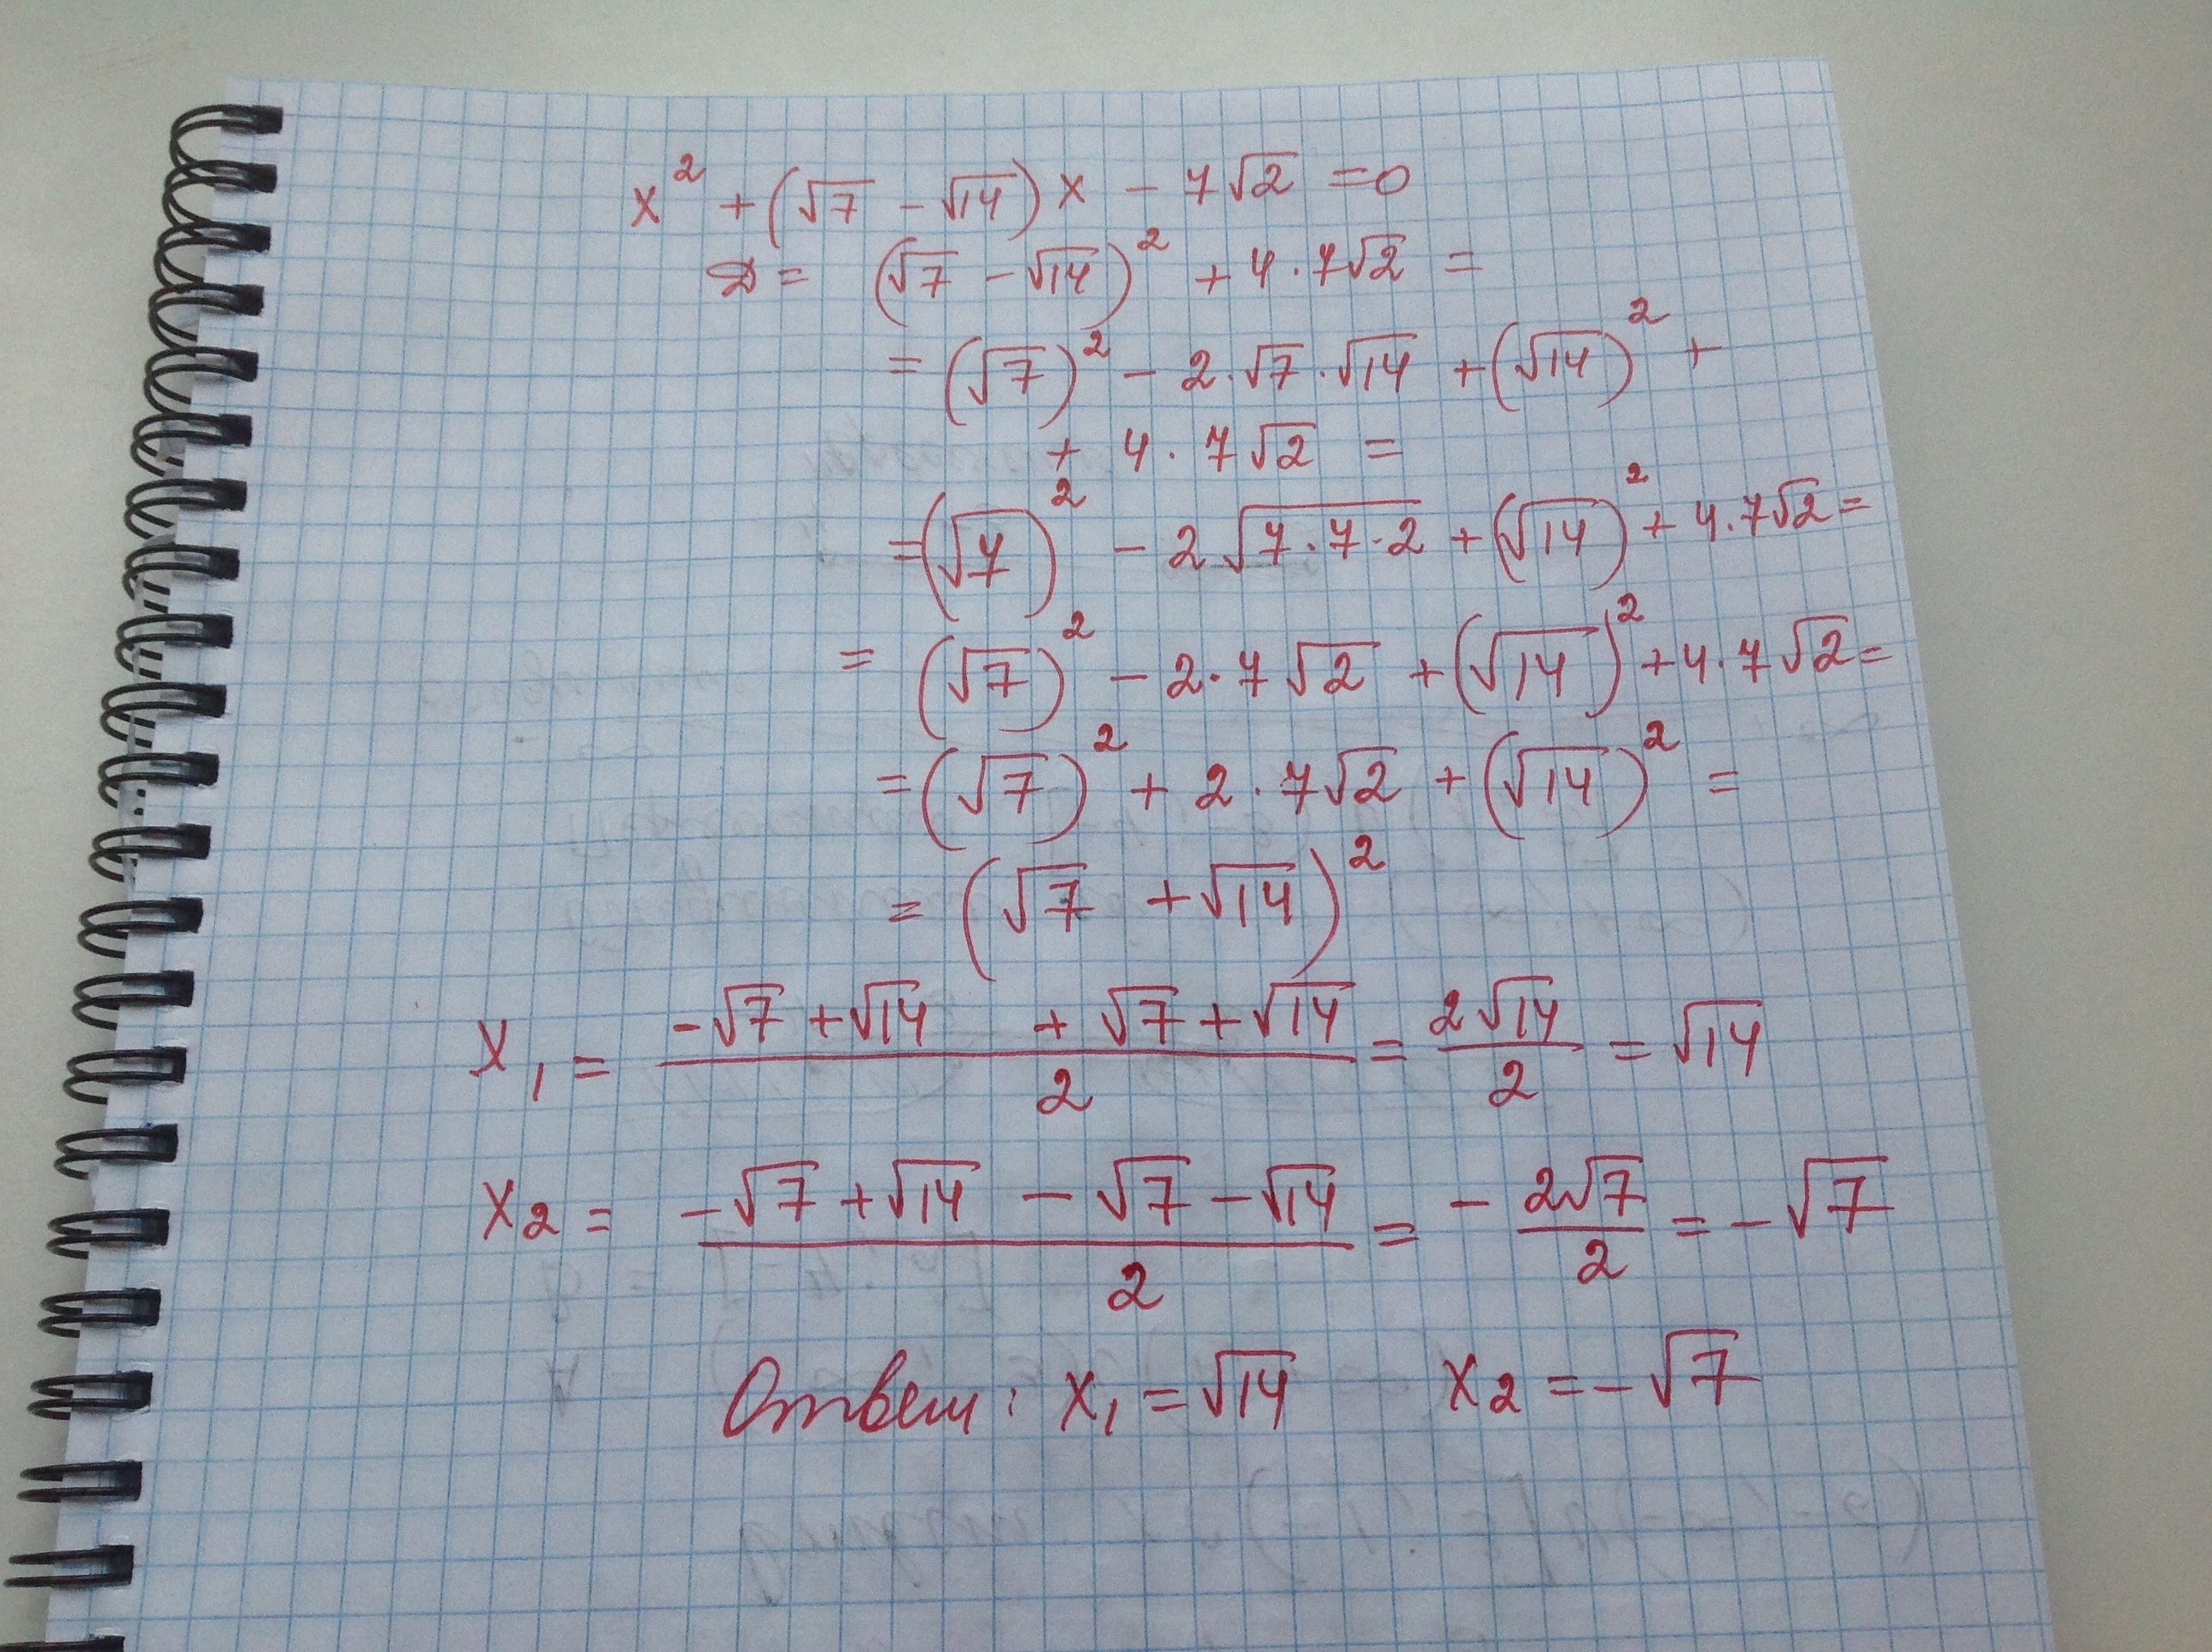 x² + (√7 - √14) x - 7√2 = 0
D = (√7 - √14)² + 4 · 7√2 =
= (√7)² - 2·√7·√14 + (√14)² +
+ 4 · 7√2 =
= (√7)² - 2√7·7·2 + (√14)² + 4·7√2 =
= (√7)² - 2·7√2 + (√14)² + 4·7√2 =
= (√7)² + 2·7√2 + (√14)² =
= (√7 + √14)²
x₁ = (-√7 + √14 + √7 + √14)/2 = 2√14/2 = √14
x₂ = (-√7 + √14 - √7 - √14)/2 = - 2√7/2 = -√7
Ответ: x₁ = √14 x₂ = -√7